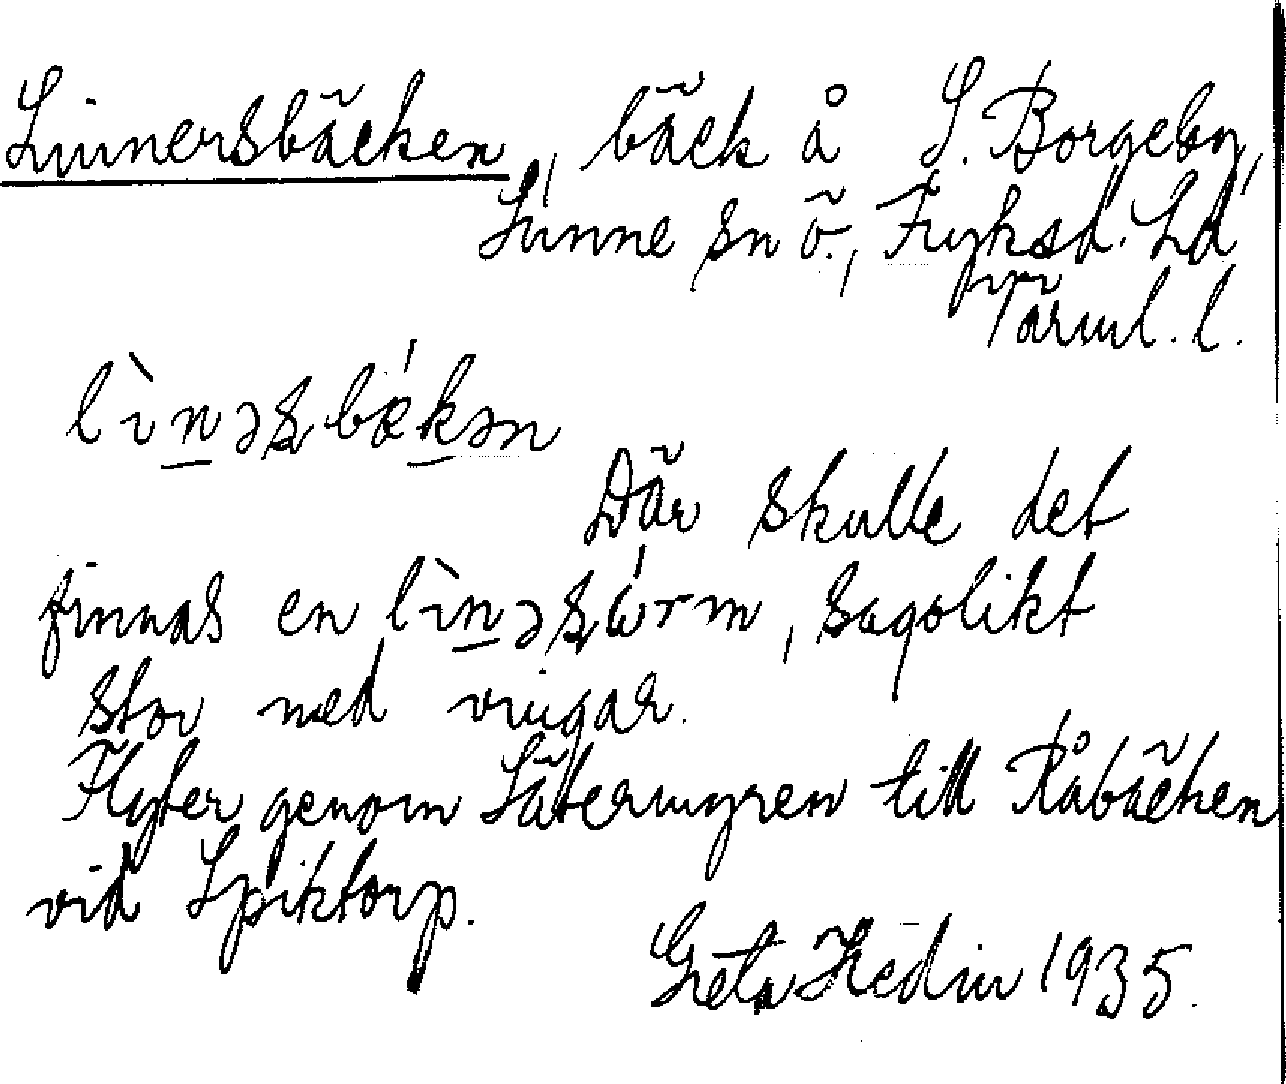 Linnersbäcken, bäck å S. Borgeby,
Sunne sn ö., Fryksd. hd
Värml. l.
lìnəsbǽkən
Där skulle det
finnas en lìnəsẃrm, sagolikt
stor med vingar.
Flyter genom Sätermyren till Råbäcken
vid Spiktorp.
Greta Hedin 1935.